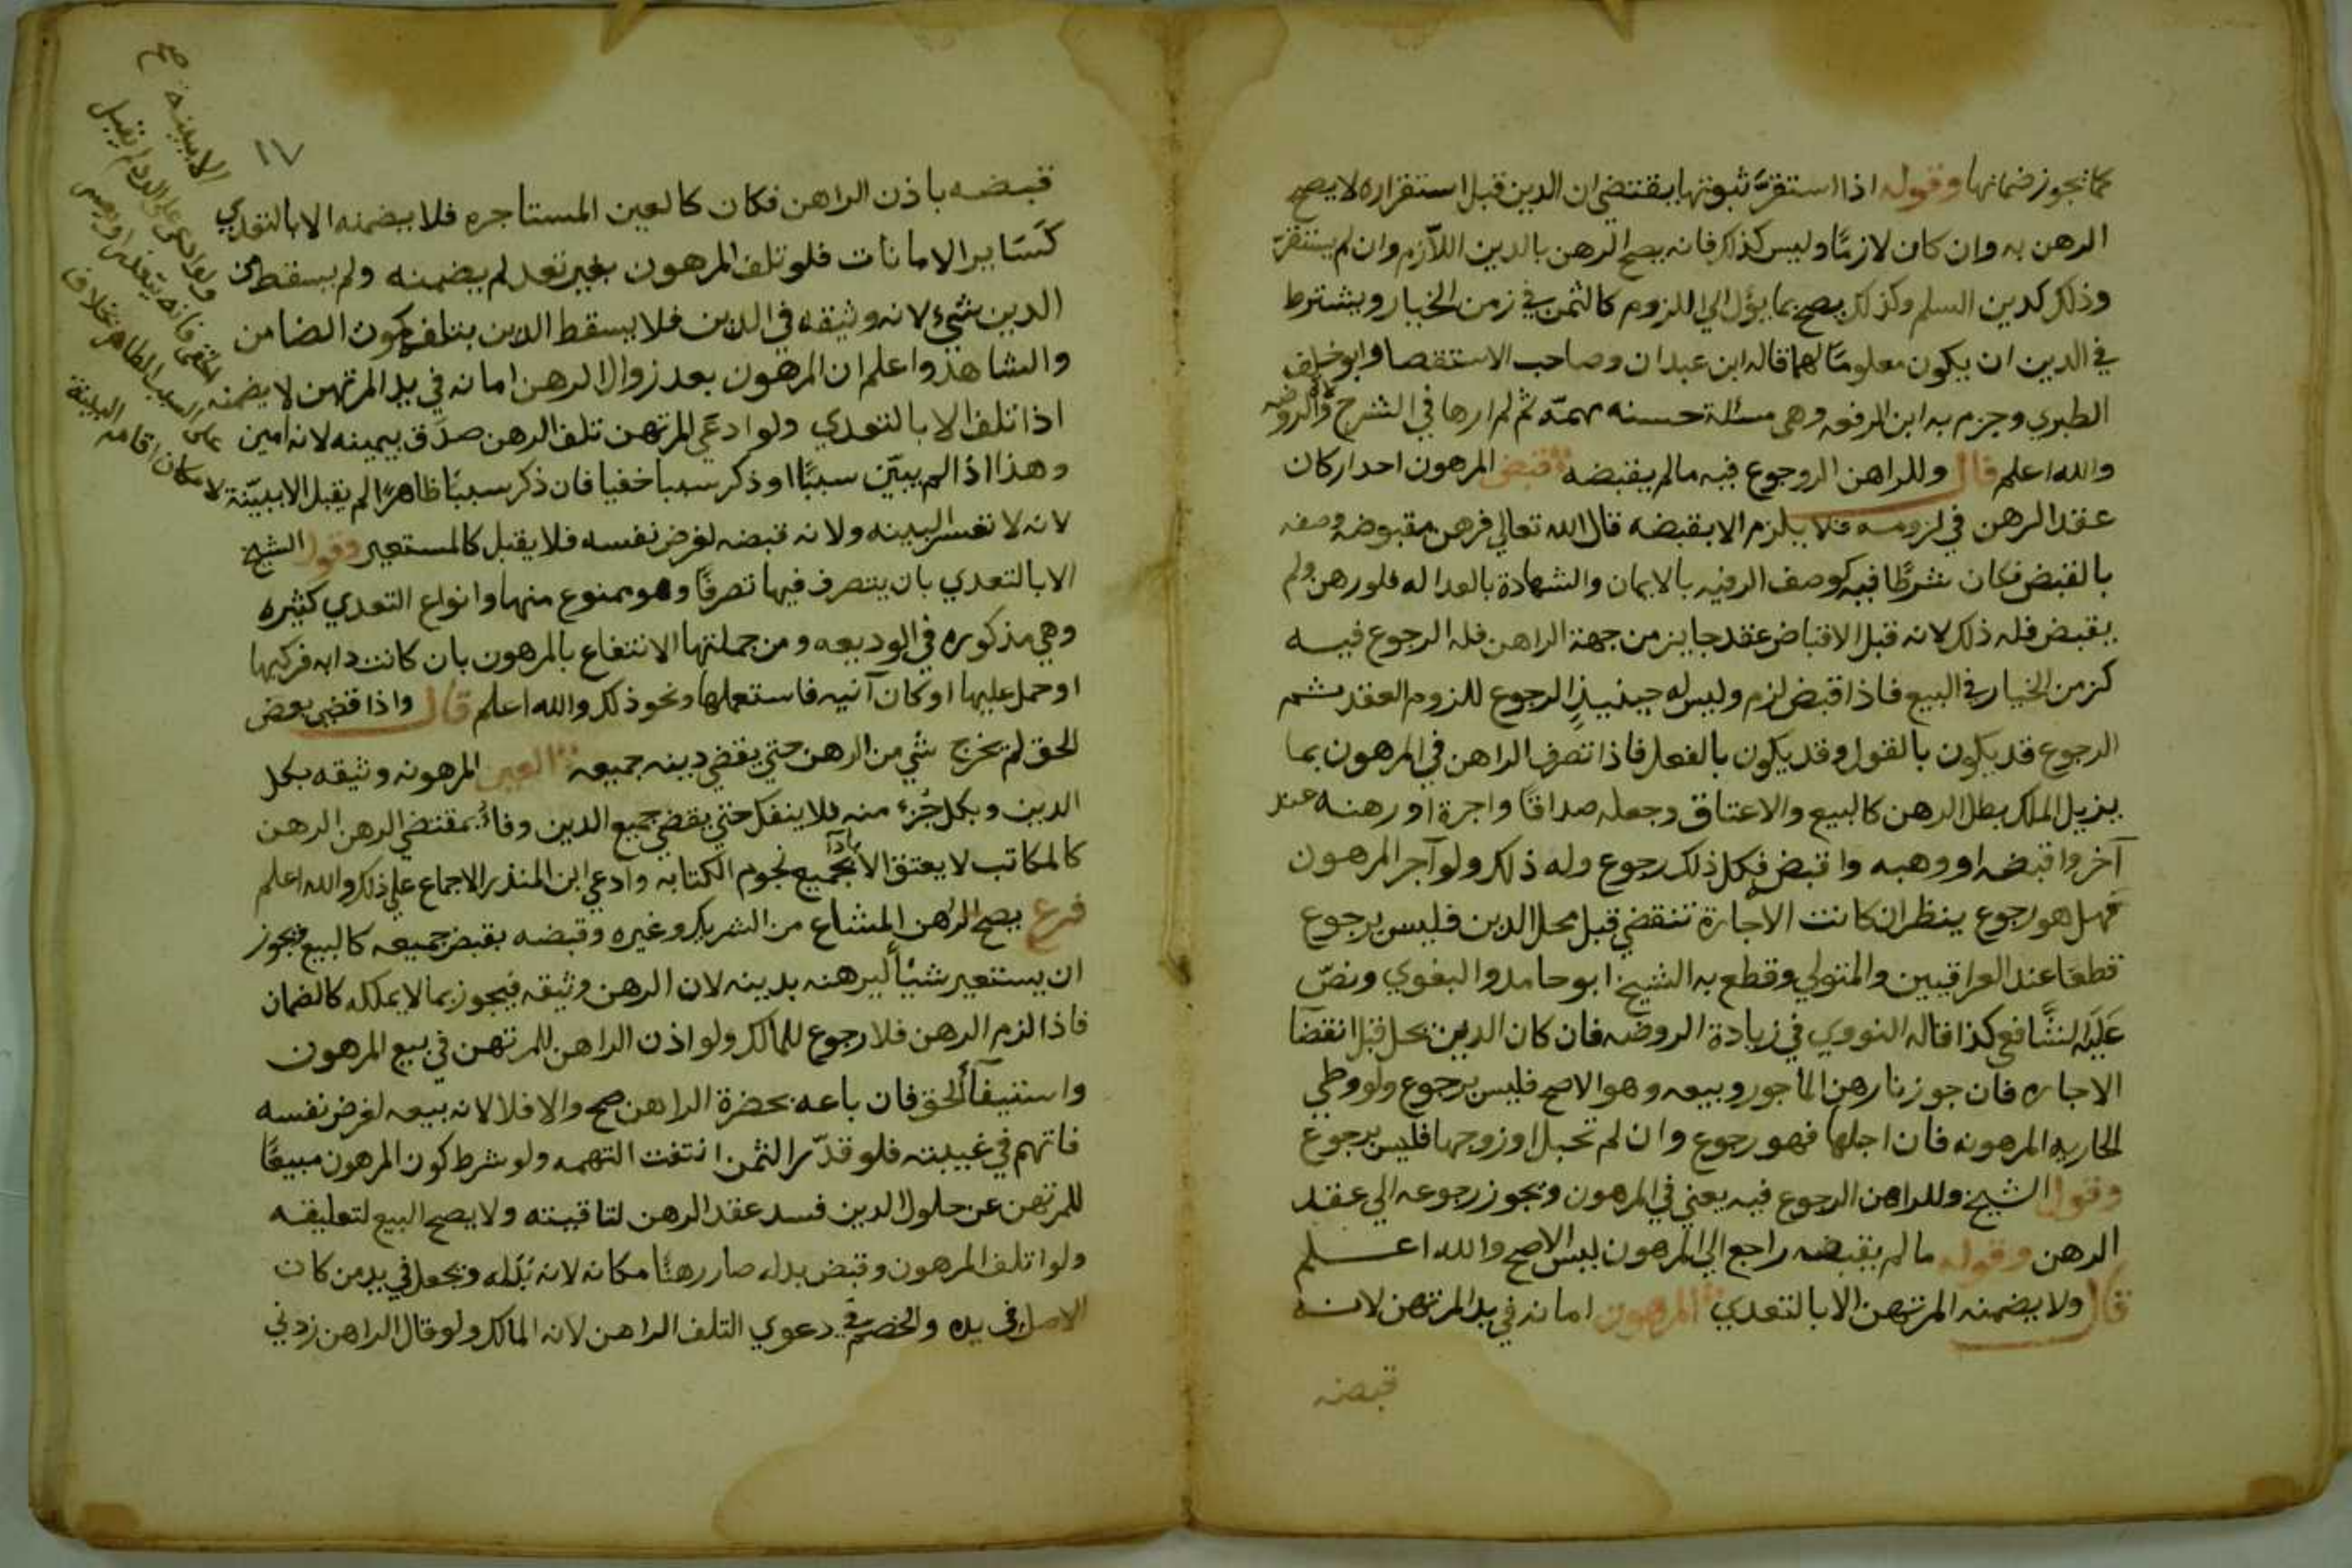 كما تجوز ضمانها وقوله اذا استقر ثبوتها يقتضي ان الدين قبل استقراره لا يصح
الرهن به وان كان لازمًا وليس كذلك فانه يصح الرهن بالدين اللازم وان لم يستقر
وذلك كدين السلم وكذلك يصح بما يؤل الي اللزوم كالثمن في زمن الخيار ويشترط
في الدين ان يكون معلومًا لهما قاله ابن عبدان وصاحب الاستقصا وابو خلف
الطبري وجزم به ابن الرفعه وهي مسئلة حسنه مهمّه ثم لم ارها في الشرح والروضه
والله اعلم قال وللراهن الرجوع فيه مالم يقبضه قبض المرهون احد اركان
عقد الرهن في لزومه فلا يلزم الا بقبضه قال الله تعالي فرهن مقبوضة وصفه
بالقبض فكان شرطًا فيه كوصف الرقبه بالايمان والشهادة بالعداله فلو رهن ولم
يقبض فله ذلك لانه قبل الاقباض عقد جايز من جهة الراهن فله الرجوع فيه
كزمن الخيار في البيع فاذا قبض لزم وليس له حينيذٍ الرجوع للزوم العقد ثم
الرجوع قد يكون بالقول وقد يكون بالفعل فاذا تصرف الراهن في المرهون بما
يزيل الملك بطل الرهن كالبيع والاعتاق وجعله صداقًا واجرة او رهنه عند
آخر واقبضه او وهبه واقبض فكل ذلك رجوع وله ذلك ولو آجر المرهون
فهل هو رجوع ينظر ان كانت الاجارة تنقضي قبل محل الدين فليس برجوع
قطعًا عند العراقيين والمتولي وقطع به الشيخ ابو حامد والبغوي ونصّ
عليه الشافعي كذا قاله النووي في زيادة الروضه فان كان الدين يحل قبل انقضا
الاجاره فان جوزنا رهن الماجور وبيعه وهو الاصح فليس برجوع ولو وطي
الجاريه المرهونه فان احبلها فهو رجوع وان لم تحبل او زوجها فليس برجوع
وقول الشيخ وللراهن الرجوع فيه يعني في المرهون ويجوز رجوعه الي عقد
الرهن وقوله مالم يقبضه راجع الي المرهون ليس الاصح والله اعلم
قال ولا يضمنه المرتهن الا بالتعدي المرهون امانه في يد المرتهن لانه
قبضه
١٧
قبضه باذن الراهن فكان كالعين المستاجره فلا يضمنه الا بالتعدي
كسَاير الامانات فلو تلف المرهون بغير تعد لم يضمنه ولم يسقط من
الدين شيء لانه وثيقه في الدين فلا يسقط الدين بتلفه كموت الضامن
والشاهد واعلم ان المرهون بعد زوال الرهن امانه في يد المرتهن لا يضمنه
اذا تلف الا بالتعدي ولو ادعي المرتهن تلف الرهن صدّق بيمينه لانه امين
وهذا اذا لم يبيّن سببًا او ذكر سببا خفيا فان ذكر سببًا ظاهرًا لم يقبل الا ببيّنة
لانه لا تعسر البينه ولانه قبضه لغرض نفسه فلا يقبل كالمستعير وقول الشيخ
الا بالتعدي بان يتصرف فيها تصرفًا وهو ممنوع منها وانواع التعدي كثيره
وهي مذكوره في الوديعه ومن جملتها الانتفاع بالمرهون بان كانت دابه فركبها
او حمل عليها او كان آنيه فاستعملها ونحو ذلك والله اعلم قال واذا قضي بعض
الحق لم يخرج شي من الرهن حتي يقضي دينه جميعه العين المرهونه وثيقه بكل
الدين وبكل جُزء منه فلا ينفك حتي يقضي جميع الدين وفاءً بمقتضي الرهن الرهن
كالمكاتب لا يعتق الا باداء جميع نجوم الكتابه وادعي ابن المنذر الاجماع علي ذلك والله اعلم
فرع يصح الرهن المشاع من الشريك وغيره وقبضه بقبض جميعه كالبيع ويجوز
ان يستعير شيًا ليرهنه بدينه لان الرهن وثيقه فيجوز بما لا يملكه كالضمان
فاذا لزم الرهن فلا رجوع للمالك ولو اذن الراهن للمرتهن في بيع المرهون
واستيفآ الحق فان باعه بحضرة الراهن صح والا فلا لانه بيعه لغرض نفسه
فاتهم في غيبته فلو قدّر الثمن انتفت التهمه ولو شرط كون المرهون مبيعًا
للمرتهن عن حلول الدين فسد عقد الرهن لتاقيته ولا يصح البيع لتعليقه
ولو اتلف المرهون وقبض بدله صار رهنًا مكانه لانه بَدَله ويجعل في يد من كان
الاصل في يده والخصم في دعوي التلف الراهن لانه المالك ولو قال الراهن زدني
ولو ادعي علي الرد لم يقبل
الا ببينه صح
لامكان اقامه البينة